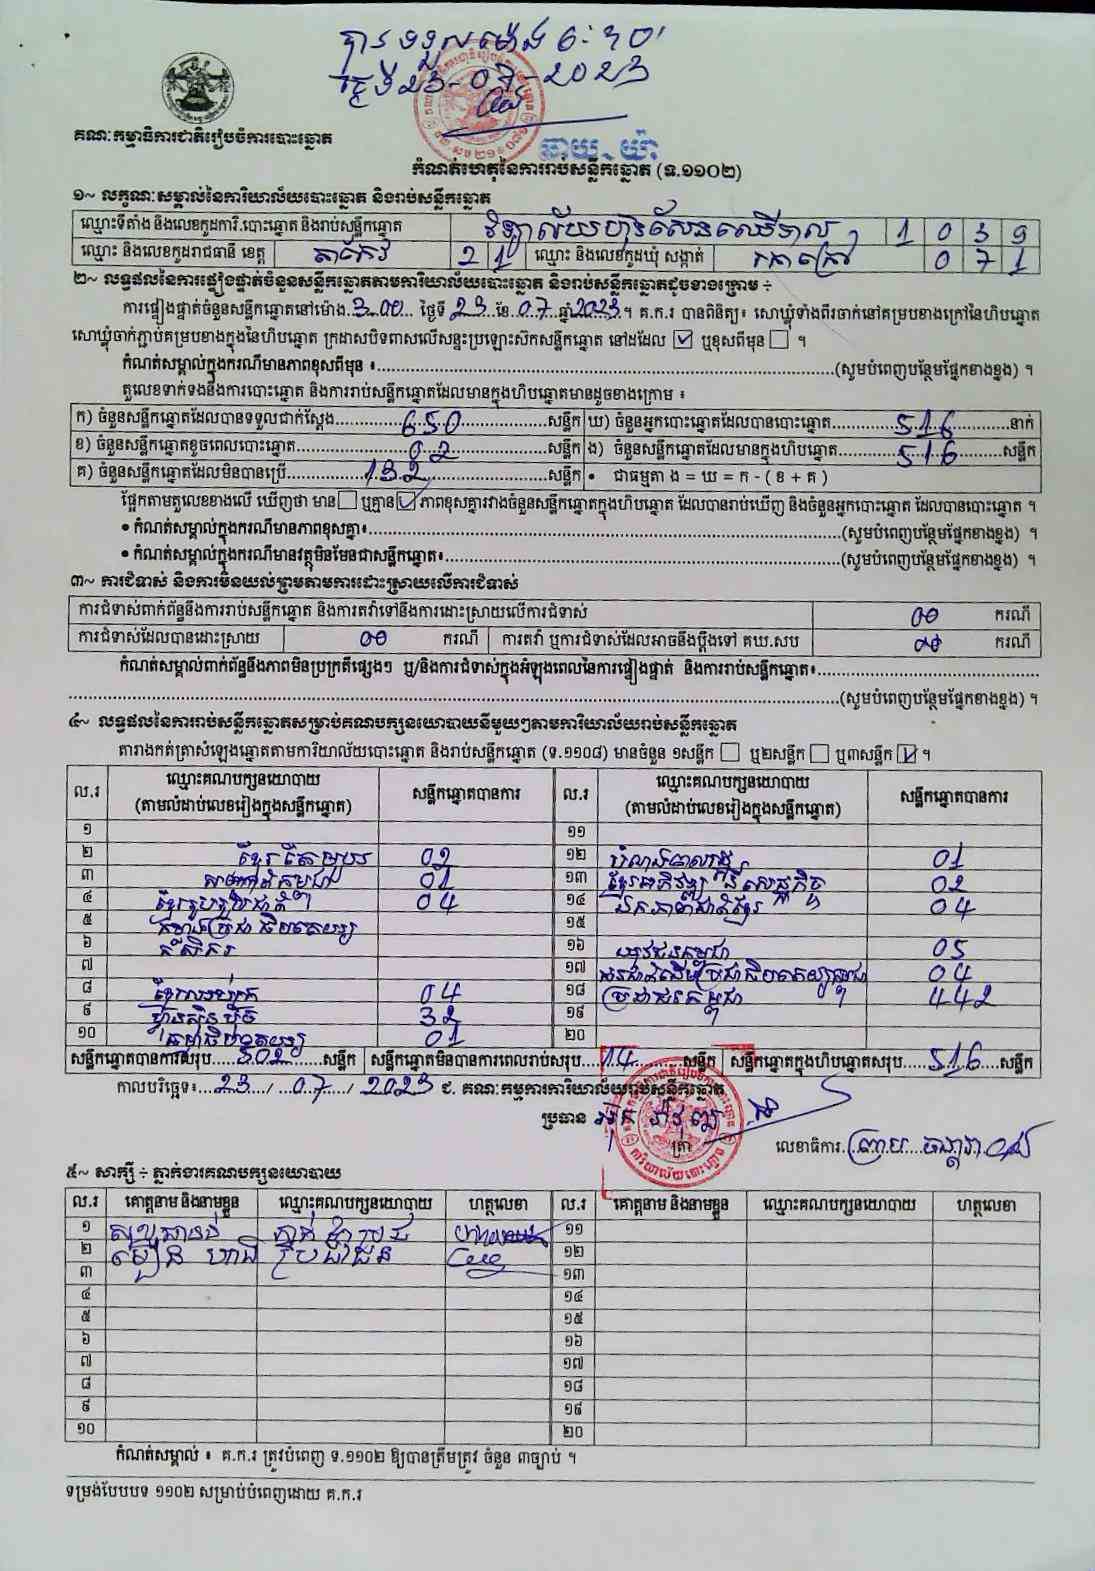 បានទទួលម៉ោង 6:30'
ថ្ងៃទី23-07-2023
ឆាយ យ៉ា
គណៈកម្មាធិការជាតិរៀបចំការបោះឆ្នោត
កំណត់ហេតុនៃការរាប់សន្លឹកឆ្នោត (ទ.១១០២)
១~ លក្ខណៈសម្គាល់នៃការិយាល័យបោះឆ្នោត និងរាប់សន្លឹកឆ្នោត
ឈ្មោះទីតាំង និងលេខកូដការិ.បោះឆ្នោត និងរាប់សន្លឹកឆ្នោត វិទ្យាល័យហ៊ុនសែនឈើទាល 1 0 3 9
ឈ្មោះ និងលេខកូដរាជធានី ខេត្ត តាកែវ 2 1 ឈ្មោះ និងលេខកូដឃុំ សង្កាត់ 0 7 1
២~ លទ្ធផលនៃការផ្ទៀងផ្ទាត់ចំនួនសន្លឹកឆ្នោតតាមការិយាល័យបោះឆ្នោត និងរាប់សន្លឹកឆ្នោតដូចខាងក្រោម ÷
ការផ្ទៀងផ្ទាត់ចំនួនសន្លឹកឆ្នោតនៅម៉ោង 3.00 ថ្ងៃទី 23 ខែ 07 ឆ្នាំ 2023 ។ គ.ក.រ បានពិនិត្យ៖ សោឃ្លុំទាំងពីរចាក់នៅគម្របខាងក្រៅនៃហិបឆ្នោត
សោឃ្លុំចាក់ភ្ជាប់គម្របខាងក្នុងនៃហិបឆ្នោត ក្រដាសបិទពាសលើសន្ទះប្រឡោះស៊កសន្លឹកឆ្នោត នៅដដែល ☑ ឬខុសពីមុន ☐ ។
កំណត់សម្គាល់ក្នុងករណីមានភាពខុសពីមុន ៖ (សូមបំពេញបន្ថែមផ្នែកខាងខ្នង) ។
តួលេខទាក់ទងនឹងការបោះឆ្នោត និងការរាប់សន្លឹកឆ្នោតដែលមានក្នុងហិបឆ្នោតមានដូចខាងក្រោម ៖
ក) ចំនួនសន្លឹកឆ្នោតដែលបានទទួលជាក់ស្តែង 650 សន្លឹក ឃ) ចំនួនអ្នកបោះឆ្នោតដែលបានបោះឆ្នោត 516 នាក់
ខ) ចំនួនសន្លឹកឆ្នោតខូចពេលបោះឆ្នោត 02 សន្លឹក ង) ចំនួនសន្លឹកឆ្នោតដែលមានក្នុងហិបឆ្នោត 516 សន្លឹក
គ) ចំនួនសន្លឹកឆ្នោតដែលមិនបានប្រើ 132 សន្លឹក • ជាធម្មតា ង = ឃ = ក - ( ខ + គ )
ផ្អែកតាមតួលេខខាងលើ ឃើញថា មាន ☐ ឬគ្មាន ☑ ភាពខុសគ្នារវាងចំនួនសន្លឹកឆ្នោតក្នុងហិបឆ្នោត ដែលបានរាប់ឃើញ និងចំនួនអ្នកបោះឆ្នោត ដែលបានបោះឆ្នោត ។
• កំណត់សម្គាល់ក្នុងករណីមានភាពខុសគ្នា៖ (សូមបំពេញបន្ថែមផ្នែកខាងខ្នង) ។
• កំណត់សម្គាល់ក្នុងករណីមានវត្ថុមិនមែនជាសន្លឹកឆ្នោត៖ (សូមបំពេញបន្ថែមផ្នែកខាងខ្នង) ។
៣~ ការជំទាស់ និងការមិនយល់ព្រមតាមការដោះស្រាយលើការជំទាស់
ការជំទាស់ពាក់ព័ន្ធនឹងការរាប់សន្លឹកឆ្នោត និងការតវ៉ាទៅនឹងការដោះស្រាយលើការជំទាស់ 00 ករណី
ការជំទាស់ដែលបានដោះស្រាយ 00 ករណី ការតវ៉ា ឬការជំទាស់ដែលអាចនឹងប្តឹងទៅ គឃ.សប 00 ករណី
កំណត់សម្គាល់ពាក់ព័ន្ធនឹងភាពមិនប្រក្រតីផ្សេងៗ ឬ/និងការជំទាស់ក្នុងអំឡុងពេលនៃការផ្ទៀងផ្ទាត់ និងការរាប់សន្លឹកឆ្នោត៖
(សូមបំពេញបន្ថែមផ្នែកខាងខ្នង) ។
៤~ លទ្ធផលនៃការរាប់សន្លឹកឆ្នោតសម្រាប់គណបក្សនយោបាយនីមួយៗតាមការិយាល័យរាប់សន្លឹកឆ្នោត
តារាងកត់ត្រាសំឡេងឆ្នោតតាមការិយាល័យបោះឆ្នោត និងរាប់សន្លឹកឆ្នោត (ទ.១១០៨) មានចំនួន ១សន្លឹក ☐ ឬ២សន្លឹក ☐ ឬ៣សន្លឹក ☑ ។
ល.រ ឈ្មោះគណបក្សនយោបាយ (តាមលំដាប់លេខរៀងក្នុងសន្លឹកឆ្នោត) សន្លឹកឆ្នោតបានការ ល.រ ឈ្មោះគណបក្សនយោបាយ (តាមលំដាប់លេខរៀងក្នុងសន្លឹកឆ្នោត) សន្លឹកឆ្នោតបានការ
១ ១១
២ ខ្មែរតែមួយ 02 ១២ 01
៣ 01 ១៣ ខ្មែរអភិវឌ្ឍន៍សេដ្ឋកិច្ច 02
៤ ខ្មែររួបរួមជាតិ 04 ១៤ ឯកភាពជាតិខ្មែរ 04
៥ សំបុកឃ្មុំប្រជាធិបតេយ្យ ១៥
៦ កសិករ ១៦ យុវជនកម្ពុជា 05
៧ ១៧ 04
៨ 04 ១៨ ប្រជាជនកម្ពុជា 442
៩ ហ្វ៊ុនស៊ិនប៉ិច 32 ១៩
១០ ធម្មាធិបតេយ្យ 01 20
សន្លឹកឆ្នោតបានការសរុប 502 សន្លឹក សន្លឹកឆ្នោតមិនបានការពេលរាប់សរុប 14 សន្លឹក សន្លឹកឆ្នោតក្នុងហិបឆ្នោតសរុប 516 សន្លឹក
កាលបរិច្ឆេទ៖ 23 / 07 / 2023 ជ. គណៈកម្មការការិយាល័យរាប់សន្លឹកឆ្នោត
ប្រធាន
ត្រា
លេខាធិការ
៥~ សាក្សី ÷ ភ្នាក់ងារគណបក្សនយោបាយ
ល.រ គោត្តនាម និងនាមខ្លួន ឈ្មោះគណបក្សនយោបាយ ហត្ថលេខា ល.រ គោត្តនាម និងនាមខ្លួន ឈ្មោះគណបក្សនយោបាយ ហត្ថលេខា
១ ១១
២ ប្រជាជន ១២
៣ ១៣
៤ ១៤
៥ ១៥
៦ ១៦
៧ ១៧
៨ ១៨
៩ ១៩
១០ ២០
កំណត់សម្គាល់ ៖ គ.ក.រ ត្រូវបំពេញ ទ.១១០២ ឱ្យបានត្រឹមត្រូវ ចំនួន ៣ច្បាប់ ។
ទម្រង់បែបបទ ១១០២ សម្រាប់បំពេញដោយ គ.ក.រ